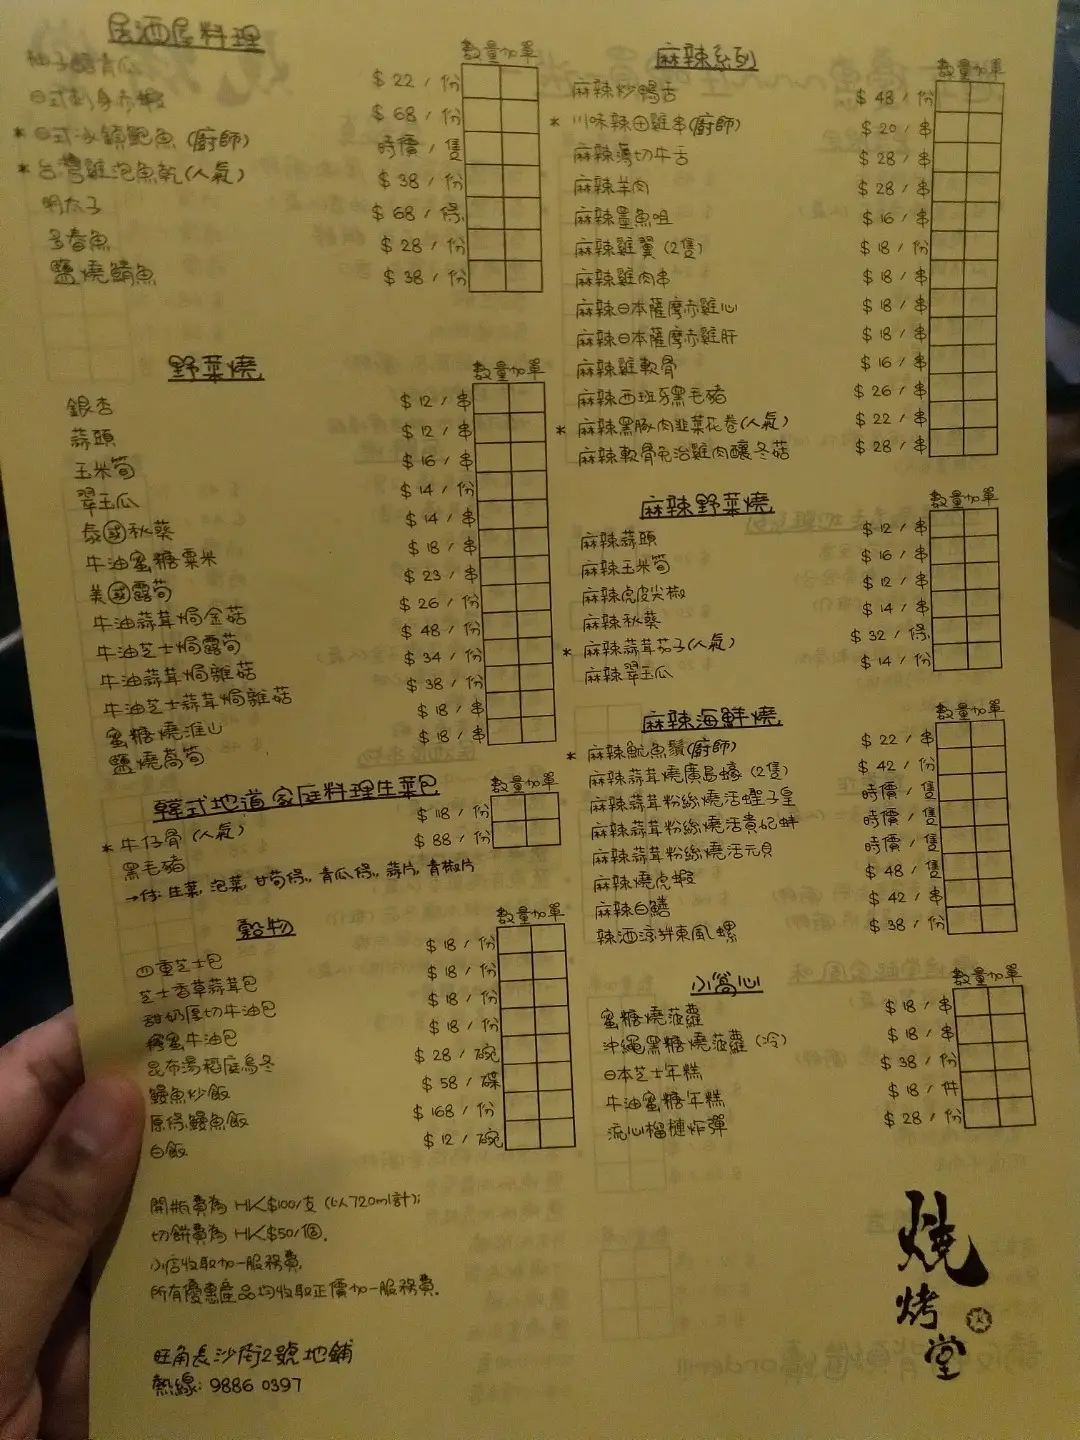 居酒屋料理
數量加單
柚子醋青瓜 $22/份
日式刺身赤蝦 $68/份
* 日式冰鎮鮑魚(廚師) 時價/隻
* 台灣雞泡魚乾(人氣) $38/份
明太子 $68/條
多春魚 $28/份
鹽燒鯖魚 $38/份
野菜燒
數量加單
銀杏 $12/串
蒜頭 $12/串
玉米筍 $16/串
翠玉瓜 $14/份
泰國秋葵 $14/串
牛油蜜糖粟米 $18/串
美國露筍 $23/串
牛油蒜茸焗金菇 $26/份
牛油芝士焗露筍 $48/份
牛油蒜茸焗雜菇 $34/份
牛油芝士蒜茸焗雜菇 $38/份
蜜糖燒淮山 $18/串
鹽燒萵筍 $18/串
韓式地道家庭料理生菜包
數量加單
* 牛仔骨(人氣) $118/份
黑毛豬 $88/份
→付: 生菜, 泡菜, 甘筍條, 青瓜條, 蒜片, 青椒片
穀物
數量加單
四重芝士包 $18/份
芝士香草蒜茸包 $18/份
甜奶厚切牛油包 $18/份
蜂蜜牛油包 $18/份
昆布湯稻庭烏冬 $28/碗
鰻魚炒飯 $58/碟
原條鰻魚飯 $168/份
白飯 $12/碗
開瓶費為 HK$100/支 (以720ml計);
切餅費為 HK$50/個.
小店收取加一服務費.
所有優惠產品均收取正價加一服務費.
旺角長沙街2號地鋪
熱線: 9886 0397
麻辣系列
數量加單
麻辣炒鴨舌 $48/份
* 川味辣田雞串(廚師) $20/串
麻辣薄切牛舌 $28/串
麻辣羊肉 $28/串
麻辣墨魚咀 $16/串
麻辣雞翼(2隻) $18/份
麻辣雞肉串 $18/串
麻辣日本薩摩赤雞心 $18/串
麻辣日本薩摩赤雞肝 $18/串
麻辣雞軟骨 $16/串
麻辣西班牙黑毛豬 $26/串
* 麻辣黑豚肉韭菜花卷(人氣) $22/串
麻辣軟骨免治雞肉釀冬菇 $28/串
麻辣野菜燒
數量加單
麻辣蒜頭 $12/串
麻辣玉米筍 $16/串
麻辣虎皮尖椒 $12/串
麻辣秋葵 $14/串
* 麻辣蒜茸茄子(人氣) $32/條
麻辣翠玉瓜 $14/份
麻辣海鮮燒
數量加單
* 麻辣魷魚鬚(廚師) $22/串
麻辣蒜茸燒廣島蠔(2隻) $42/份
麻辣蒜茸粉絲燒活蟶子皇 時價/隻
麻辣蒜茸粉絲燒活貴妃蚌 時價/隻
麻辣蒜茸粉絲燒活元貝 時價/隻
麻辣燒虎蝦 $48/隻
麻辣白鱔 $42/串
辣酒涼拌東風螺 $38/份
小窩心
數量加單
蜜糖燒菠蘿 $18/串
沖繩黑糖燒菠蘿(冷) $18/串
日本芝士年糕 $38/份
牛油蜜糖年糕 $18/件
流心榴槤炸彈 $28/份
燒烤堂